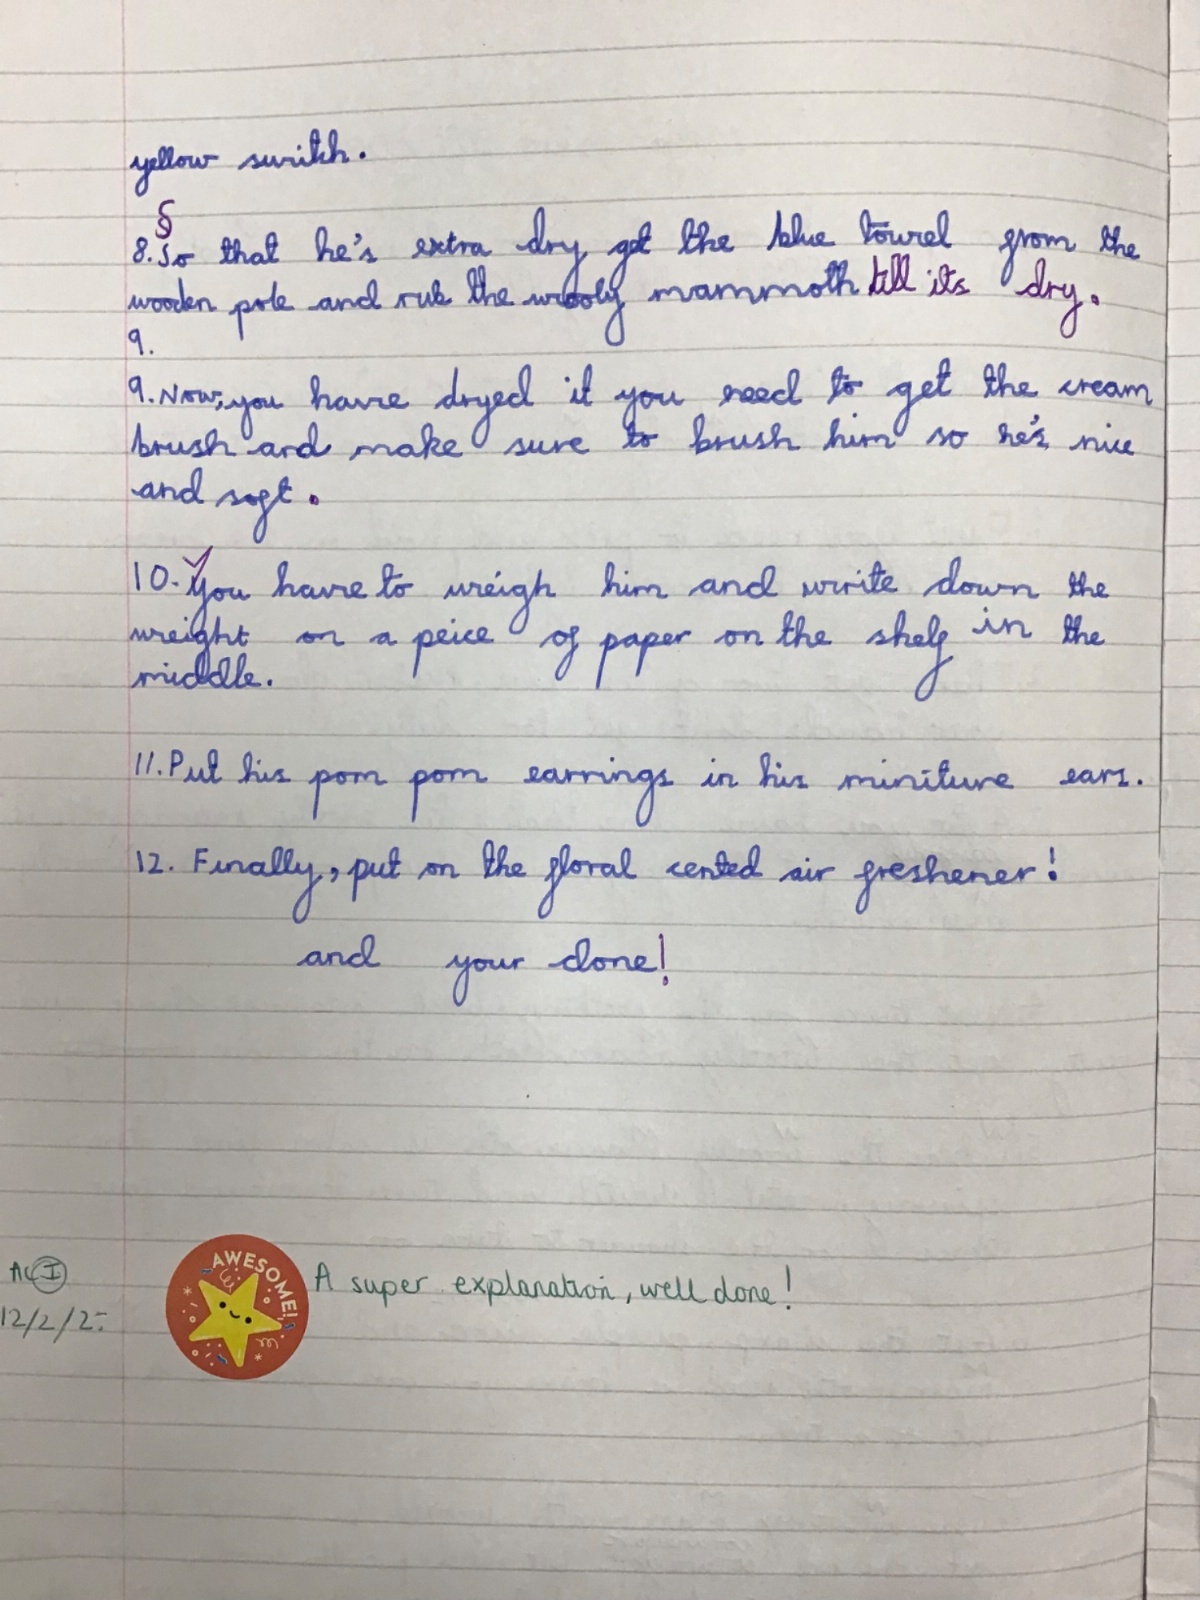 yellow switch.
8. So that he's extra dry get the blue towel from the
wooden pole and rub the wooly mammoth till its dry.
9.
9. Now, you have dryed it you need to get the cream
brush and make sure to brush him so he's nice
and soft.
10. You have to weigh him and write down the
weight on a peice of paper on the shelf in the
middle.
11. Put his pom pom earrings in his miniture ears.
12. Finally, put on the floral cented air freshener!
and your done!
AWESOME!
A super explanation, well done!
I
12/2/2